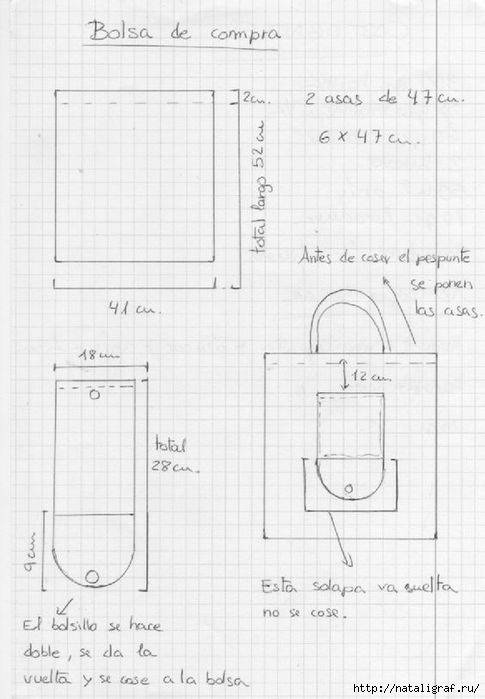 Bolsa de compra
2cm.
2 asas de 47 cm.
6 x 47 cm.
total largo 52 cm
41 cm.
Antes de coser el pespunte
se ponen
las asas.
18cm
12 cm
total
28cm.
9cm
Esta solapa va suelta
no se cose.
El bolsillo se hace
doble, se da la
vuelta y se cose a la bolsa
http://nataligraf.ru/